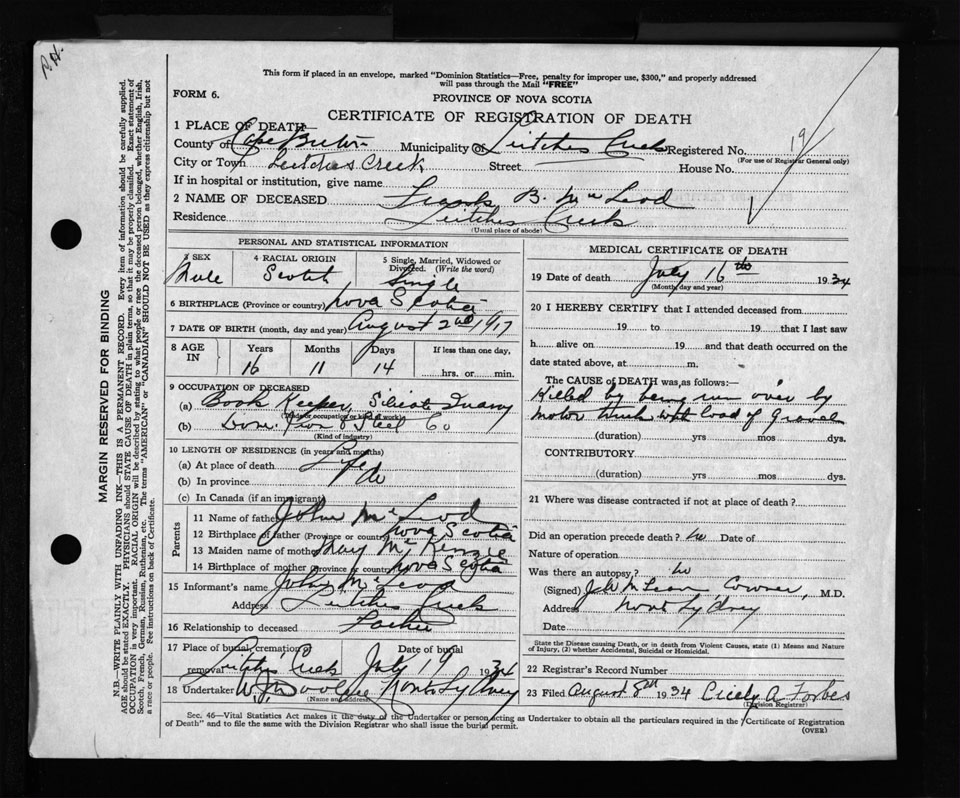 P.H.
This form if placed in an envelope, marked "Dominion Statistics—Free, penalty for improper use, $300," and properly addressed
will pass through the Mail "FREE"
FORM 6.
PROVINCE OF NOVA SCOTIA
CERTIFICATE OF REGISTRATION OF DEATH
1 PLACE OF DEATH—
County of Cape Breton Municipality of Leitches Creek Registered No. 19
(For use of Registrar General only)
City or Town Leitches Creek Street House No.
If in hospital or institution, give name
2 NAME OF DECEASED Frank B. McLeod
Residence Leitches Creek
(Usual place of abode)
PERSONAL AND STATISTICAL INFORMATION
3 SEX 4 RACIAL ORIGIN 5 Single, Married, Widowed or
Divorced. (Write the word)
Male Scotch Single
6 BIRTHPLACE (Province or country) Nova Scotia
7 DATE OF BIRTH (month, day and year) August 2nd 1917
8 AGE IN Years Months Days If less than one day,
16 11 14 hrs. or min.
9 OCCUPATION OF DECEASED
(a) Book Keeper, Quarry
(Trade or occupation or kind of work)
(b) Dom. Iron & Steel Co
(Kind of industry)
10 LENGTH OF RESIDENCE (in years and months)
(a) At place of death Life
(b) In province do
(c) In Canada (if an immigrant)
Parents
11 Name of father John McLeod
12 Birthplace of father (Province or country) Nova Scotia
13 Maiden name of mother May McKenzie
14 Birthplace of mother (Province or country) Nova Scotia
15 Informant's name John McLeod
Address Leitches Creek
16 Relationship to deceased Father
17 Place of burial, cremation or removal Date of burial
Leitches Creek July 19 1934
18 Undertaker W. J. Dooley North Sydney
(Name and address)
MEDICAL CERTIFICATE OF DEATH
19 Date of death July 16th 1934
(Month, day and year)
20 I HEREBY CERTIFY that I attended deceased from
19 to 19 that I last saw
h alive on 19 and that death occurred on the
date stated above, at m.
The CAUSE OF DEATH was as follows:—
Killed by being run over by
motor truck load of gravel
(duration) yrs mos dys.
CONTRIBUTORY
(duration) yrs mos dys.
21 Where was disease contracted if not at place of death?
Did an operation precede death? no Date of
Nature of operation
Was there an autopsy? no
(Signed) McLean Coroner, M.D.
Address North Sydney
Date
State the Disease causing Death, or in death from Violent Causes, state (1) Means and Nature
of Injury, (2) whether Accidental, Suicidal or Homicidal.
22 Registrar's Record Number
23 Filed August 8th 1934 Cicely A Forbes
(Division Registrar)
Sec. 46—Vital Statistics Act makes it the duty of the Undertaker or person acting as Undertaker to obtain all the particulars required in the "Certificate of Registration
of Death" and to file the same with the Division Registrar who shall issue the burial permit.
(OVER)
MARGIN RESERVED FOR BINDING
N.B.—WRITE PLAINLY WITH UNFADING INK—THIS IS A PERMANENT RECORD. Every item of information should be carefully supplied.
AGE should be stated EXACTLY. PHYSICIANS should STATE CAUSE OF DEATH in plain terms, so that it may be properly classified. Exact statement of
OCCUPATION is very important. RACIAL ORIGIN will be described by stating to what people or race the deceased person belonged, whether English, Irish,
Scotch, French, German, Russian, Ruthenian, etc. The terms "AMERICAN" or "CANADIAN" SHOULD NOT BE USED as they express citizenship but not
a race or people. See instructions on back of Certificate.